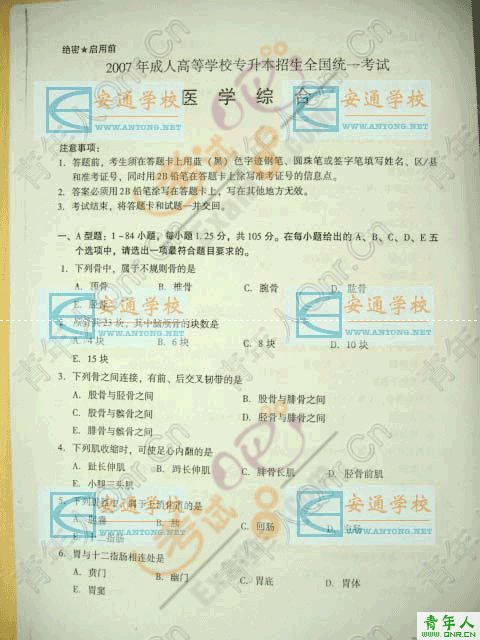 绝密★启用前
2007年成人高等学校专升本招生全国统一考试
医学综合
注意事项:
1. 答题前,考生须在答题卡上用蓝(黑)色字迹钢笔、圆珠笔或签字笔填写姓名、区/县
和准考证号,同时用2B铅笔在答题卡上涂写准考证号的信息点。
2. 答案必须用2B铅笔涂写在答题卡上,写在其他地方无效。
3. 考试结束,将答题卡和试题一并交回。
一、A型题:1-84小题,每小题1.25分,共105分。在每小题给出的A、B、C、D、E五
个选项中,请选出一项最符合题目要求的。
1. 下列骨中,属于不规则骨的是
A. 顶骨 B. 椎骨 C. 腕骨 D. 肱骨
E. 胫骨
2. 颅骨共23块,其中脑颅骨的块数是
A. 4块 B. 6块 C. 8块 D. 10块
E. 15块
3. 下列骨之间连接,有前、后交叉韧带的是
A. 股骨与胫骨之间 B. 股骨与腓骨之间
C. 股骨与髌骨之间 D. 胫骨与腓骨之间
E. 腓骨与髌骨之间
4. 下列肌收缩时,可使足必内翻的是
A. 趾长伸肌 B. 踇长伸肌 C. 腓骨长肌 D. 胫骨前肌
E. 小腿三头肌
5. 下列
的是
C. 回肠 D. 盲肠
E. 十二指肠
6. 胃与十二指肠相连处是
A. 贲门 B. 幽门 C. 胃底 D. 胃体
E. 胃窦
安通学校
WWW.ANTONG.NET.CN
安通学校
WWW.ANTONG.NET.CN
安通学校
WWW.ANTONG.NET.CN
安通学校
WWW.ANTONG.NET.CN
安通学校
WWW.ANTONG.NET.CN
安通学校
WWW.ANTONG.NET.CN
青年人
WWW.QNR.CN